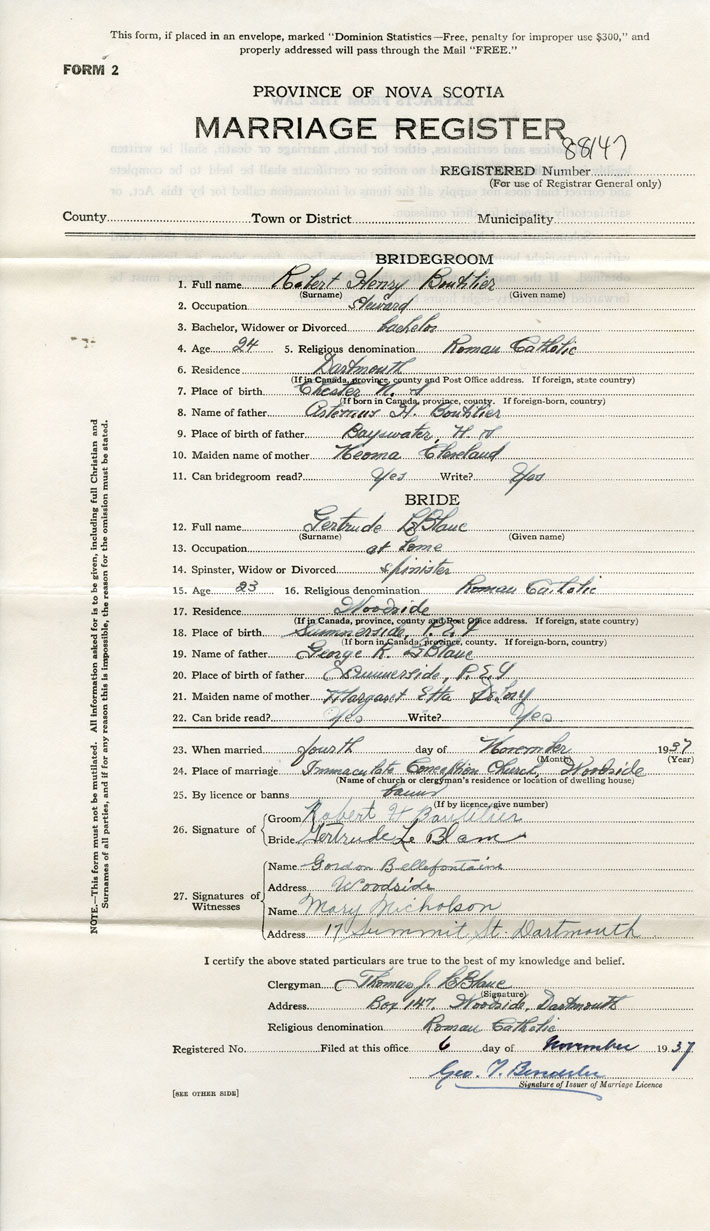 This form, if placed in an envelope, marked "Dominion Statistics—Free, penalty for improper use $300," and
properly addressed will pass through the Mail "FREE."
FORM 2
PROVINCE OF NOVA SCOTIA
MARRIAGE REGISTER
88147
REGISTERED Number
(For use of Registrar General only)
County Town or District Municipality
BRIDEGROOM
1. Full name Robert Henry Boutilier
(Surname) (Given name)
2. Occupation Steward
3. Bachelor, Widower or Divorced bachelor
4. Age 24 5. Religious denomination Roman Catholic
6. Residence Dartmouth
(If in Canada, province, county and Post Office address. If foreign, state country)
7. Place of birth Chester N. S
(If born in Canada, province, county. If foreign-born, country)
8. Name of father H. Boutilier
9. Place of birth of father Bayswater, N. S
10. Maiden name of mother Cleveland
11. Can bridegroom read? Yes Write? Yes
BRIDE
12. Full name Gertrude LeBlanc
(Surname) (Given name)
13. Occupation at home
14. Spinster, Widow or Divorced spinster
15. Age 23 16. Religious denomination Roman Catholic
17. Residence Woodside
(If in Canada, province, county and Post Office address. If foreign, state country)
18. Place of birth Summerside, P. E. I
(If born in Canada, province, county. If foreign-born, country)
19. Name of father George R. LeBlanc
20. Place of birth of father Summerside, P. E. I
21. Maiden name of mother Margaret Etta DeLory
22. Can bride read? Yes Write? Yes
23. When married fourth day of November 1937
(Month) (Year)
24. Place of marriage Immaculate Conception Church, Woodside
(Name of church or clergyman's residence or location of dwelling house)
25. By licence or banns banns
(If by licence, give number)
26. Signature of
Groom Robert H Boutilier
Bride Gertrude Le Blanc
27. Signatures of
Witnesses
Name Gordon Bellefontaine
Address Woodside
Name Mary Nicholson
Address 17 Summit St. Dartmouth
I certify the above stated particulars are true to the best of my knowledge and belief.
Clergyman Thomas J. LeBlanc
(Signature)
Address Box 147, Woodside, Dartmouth
Religious denomination Roman Catholic
Registered No. Filed at this office 6 day of November 1937
Geo. T.
Signature of Issuer of Marriage Licence
[SEE OTHER SIDE]
NOTE.—This form must not be mutilated. All information asked for is to be given, including full Christian and
Surnames of all parties, and if for any reason this is impossible, the reason for the omission must be stated.